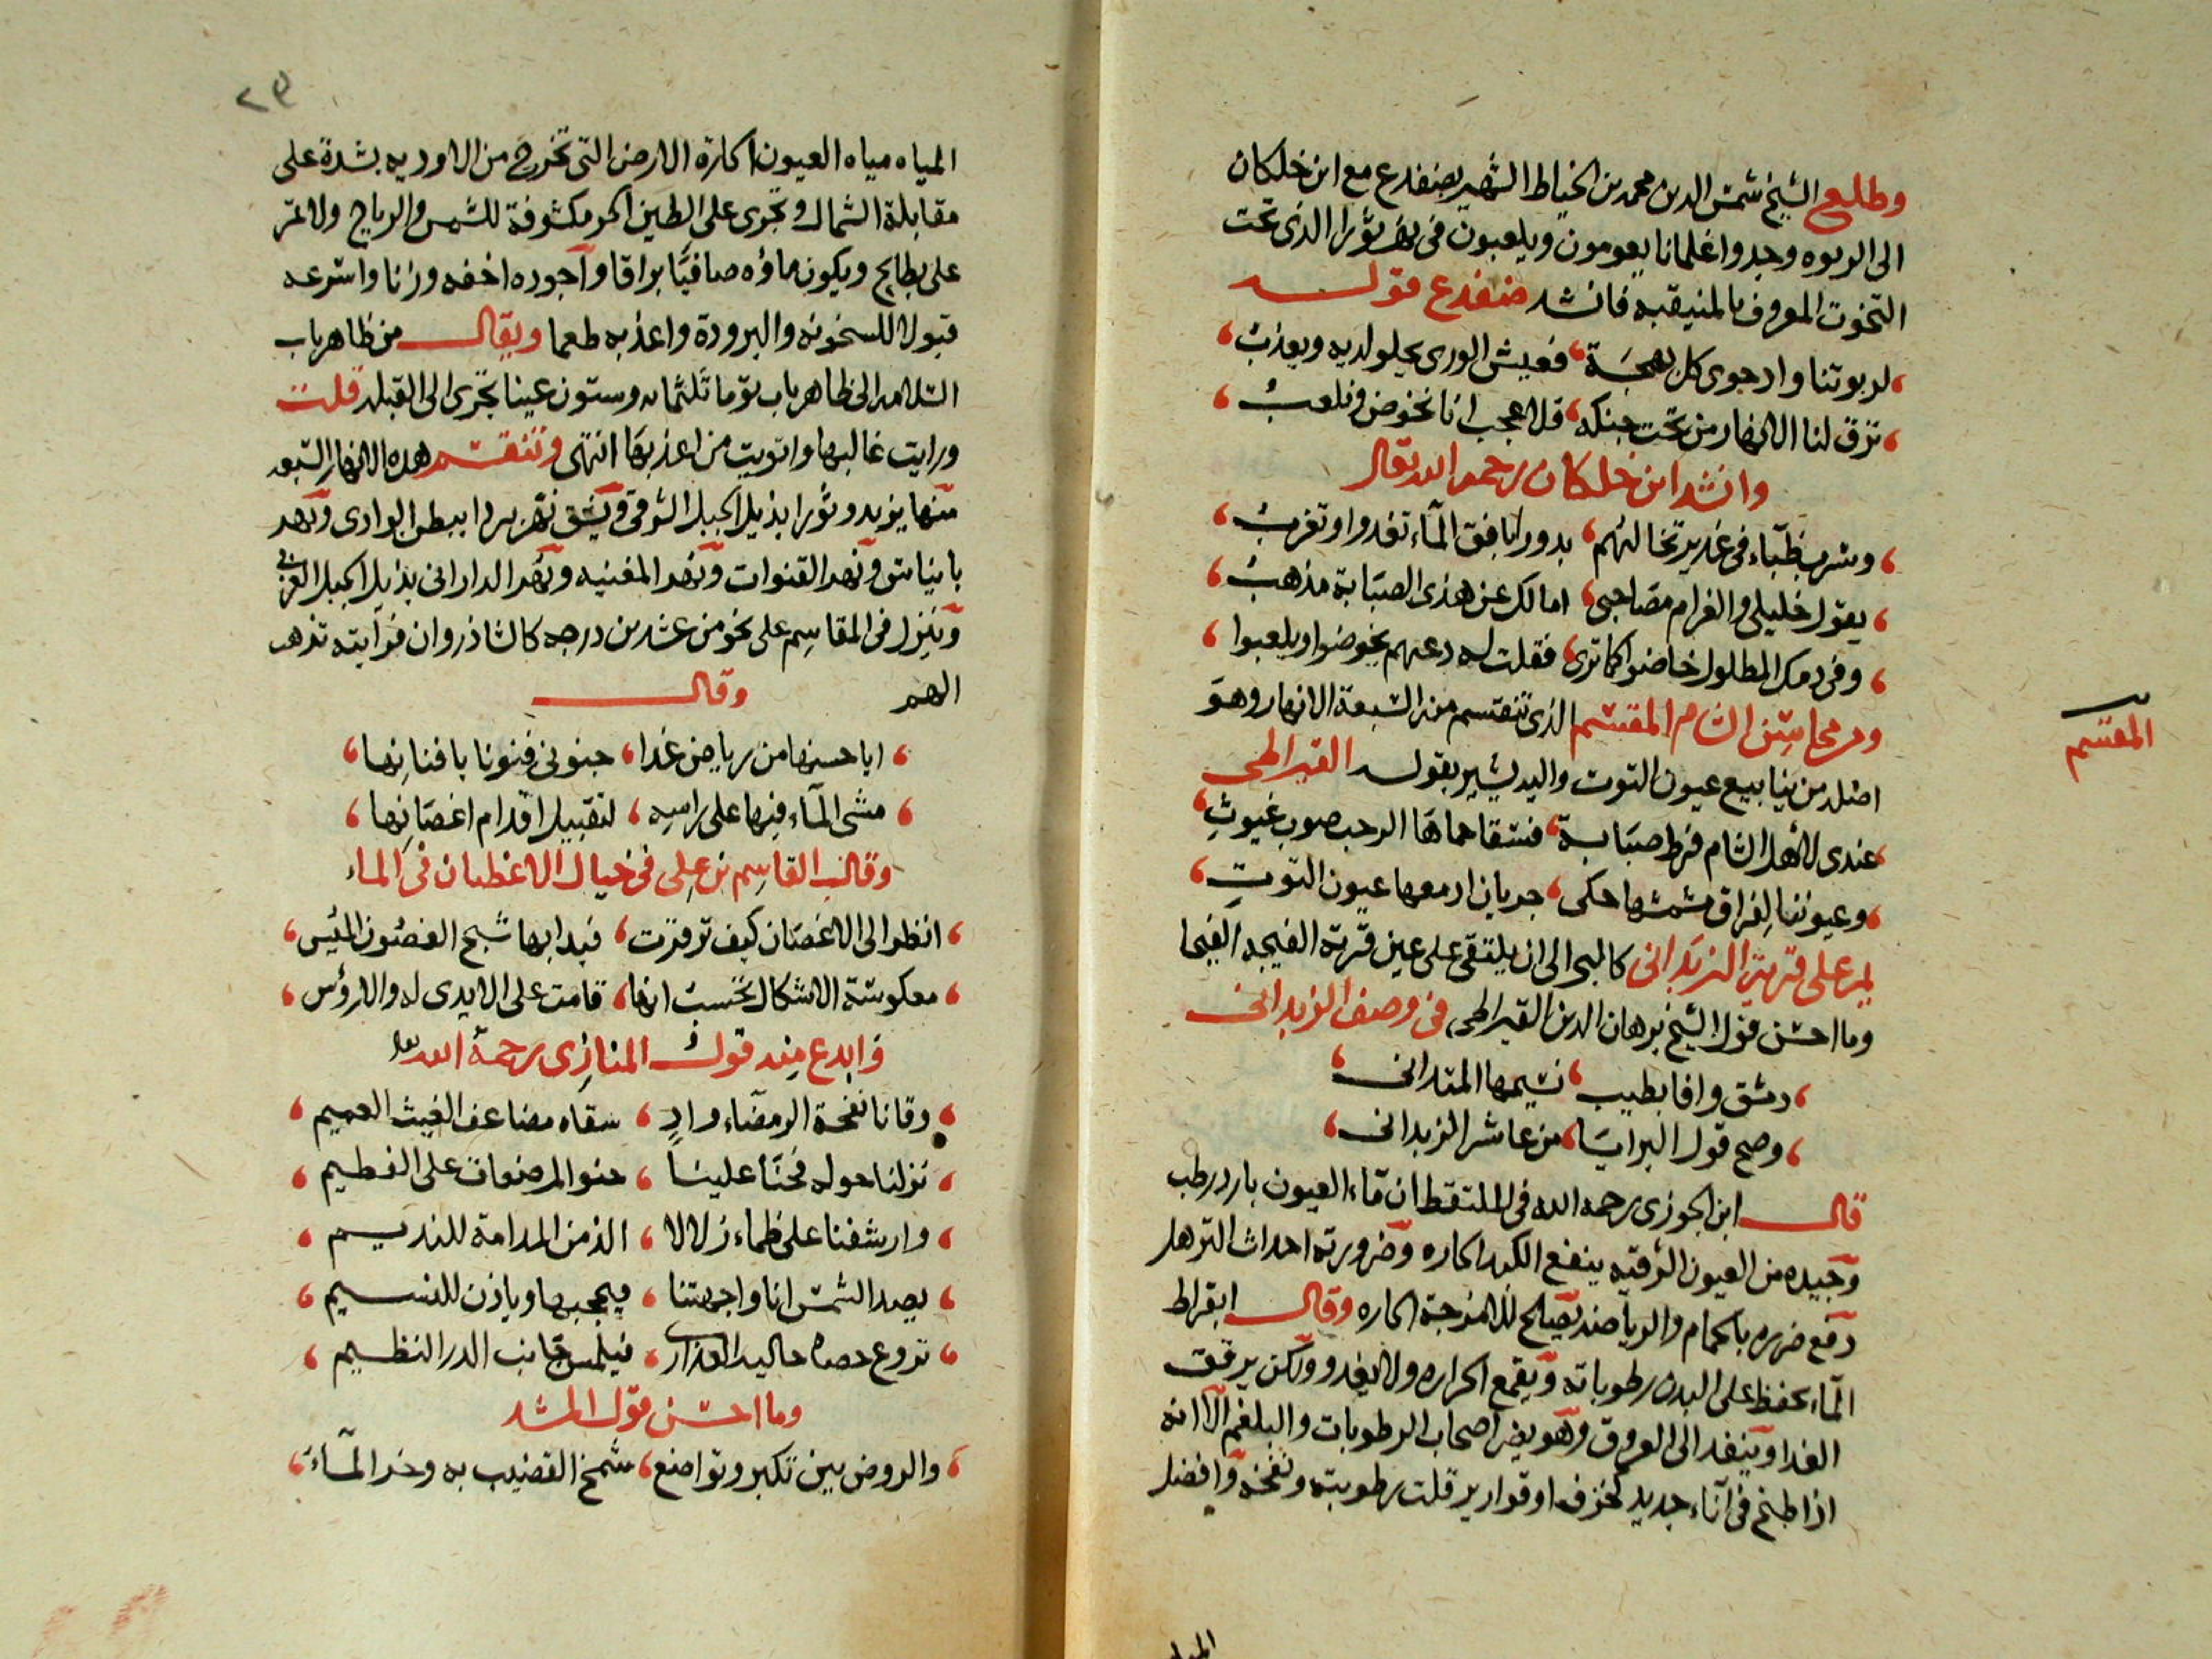 وطلع الشيخ شمس الدين محمد بن الخياط الشهير بضفدع مع ابن خلكان
الى الربوه وجدوا غلمانا يعومون ويلعبون في نهر ثورا الذي تحت
التخوت المعروف بالمنيقبه فانشد ضفدع قوله
لربوتنا واد حوى كل بهجة فعيش الورى يحلو لديه ويعذب
ترق لنا الانهار من تحت جنكه فلا عجب انا نخوض ونلعب
وانشد ابن خلكان رحمه الله تعالى
وسرب ظباء في غدير تخالهم بدورا بافق الماء تغدوا وتغرب
يقول خليلي والغرام مصاحبي امالك عن هذي الصبابة مذهب
وفي دمك المطلول خاضوا كما ترى فقلت له دعهم يخوضوا ويلعبوا
ومن محاسن الشام المقسم الذي تنقسم منه السبعة الانهار وهو
المقسم
اصله من ينابيع عيون التوت واليه يشير بقوله القيراطي
عندي لاهل الشام فرط صبابة فسقا حماها الرحب صوب غيوث
وعيوننا لفراق مشمشها حكى جريان ادمعها عيون التوت
يمر على قرية الزبداني كالبحر الى ان يلتقي على عين قرية الفيجه الفيحا
وما احسن قول الشيخ برهان الدين القيراطي في وصف الزبداني
دمشق وافا بطيب نسيمها المتداني
وصح قول البرايا من عاشر الزبداني
قال ابن الجوزي رحمه الله في الملتقط ان ماء العيون بارد رطب
وجيده من العيون الشرقيه ينفع الكبد الحاره وضرورته احداث الترهل
دفع ضرره بالحمام والرياضه يصلح للامزجة الحاره وقال ابقراط
الماء يحفظ على البدن رطوباته ويقمع الحراره ولا يغدو ولكن يرقق
الغدا وينفد الى العروق وهو يضر اصحاب الرطوبات والبلغم الا انه
اذا طبخ في آناء جديد كخزف او قوارير قلت رطوبته ونفخه وافضل
المياه
٢٩
المياه مياه العيون الحارة الارض التي تخرج من الاوديه بشدة على
مقابلة الشمال وتجري على الطين الحر مكشوفة للشمس والرياح ولا تمر
على بطايح ويكون ماؤه صافيا براقا وآجوده اخفه وزنا واسرعه
قبولا للسخونه والبرودة واعذبه طعما ويقال من ظاهر باب
السلامه الى ظاهر باب توما ثلثمايه وستون عينا تجري الى القبله قلت
ورايت غالبها وارتويت من اعذبها انتهى وتنقسم هده الانهار السبعه
منها يزيد وثورا بذيل الجبل الشرقي ويشق نهر بردا ببطن الوادي ونهر
باينا س ونهر القنوات ونهر المغنيه ونهر الداراني بذيل الجبل الغربي
وينزل في المقاسم على نحو من عشرين درجه كالشاذروان فرآيته تذهب
الهم وقال
ايا حسنها من رياض غدا جنوني فنونا بافنانها
مشى الماء فيها على راسه لتقبيل اقدام اغصانها
وقال القاسم بن علي في خيال الاغصان في الماء
انظر الى الاغصان كيف ترقرت فبدا بها شبح الغصون الميس
معكوسة الاشكال تحسب انها قامت على الايدي له والارؤس
وابدع منه قول المنازي رحمة الله
وقانا لفحة الرمضاء واد سقاه مضاعف الغيث العميم
نزلنا حوله فحنا علينا حنو المرضعات على الفطيم
وارشفنا على ظماء زلالا الذ من المدامة للنديم
يصد الشمس انا واجهتنا فيحجبها وياذن للنسيم
تروع حصاه حاليه العذارى فيلمس جانب الدر النظيم
وما احسن قول المشد
والروض بين تكبر وتواضع شمخ القضيب به وخر الماء